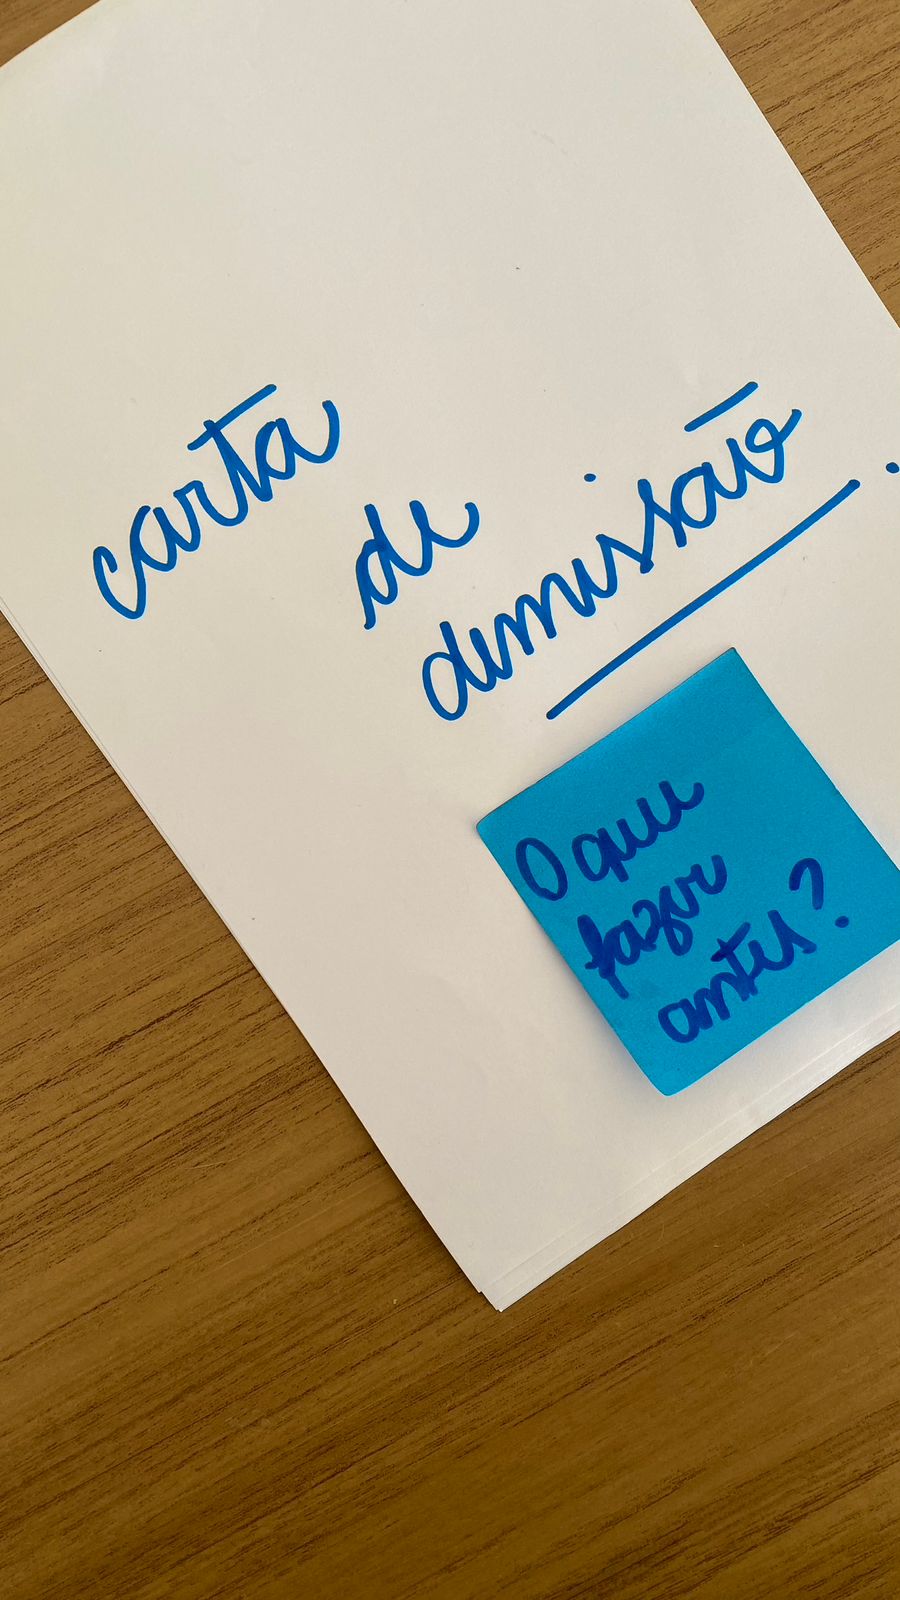 carta
de
demissão.
O que
fazer
antes?